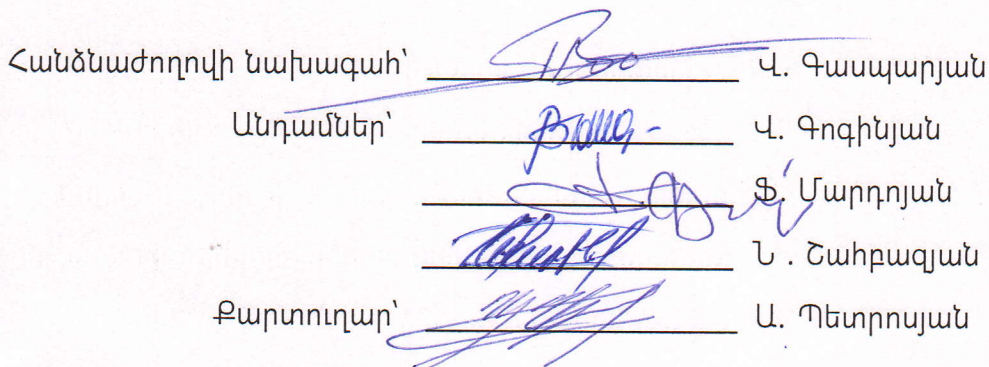 Հանձնաժողովի նախագահ՝ Վ. Գասպարյան
Անդամներ՝ Վ. Գոգինյան
Ֆ. Մարդոյան
Ն . Շահբազյան
Քարտուղար՝ Ա. Պետրոսյան